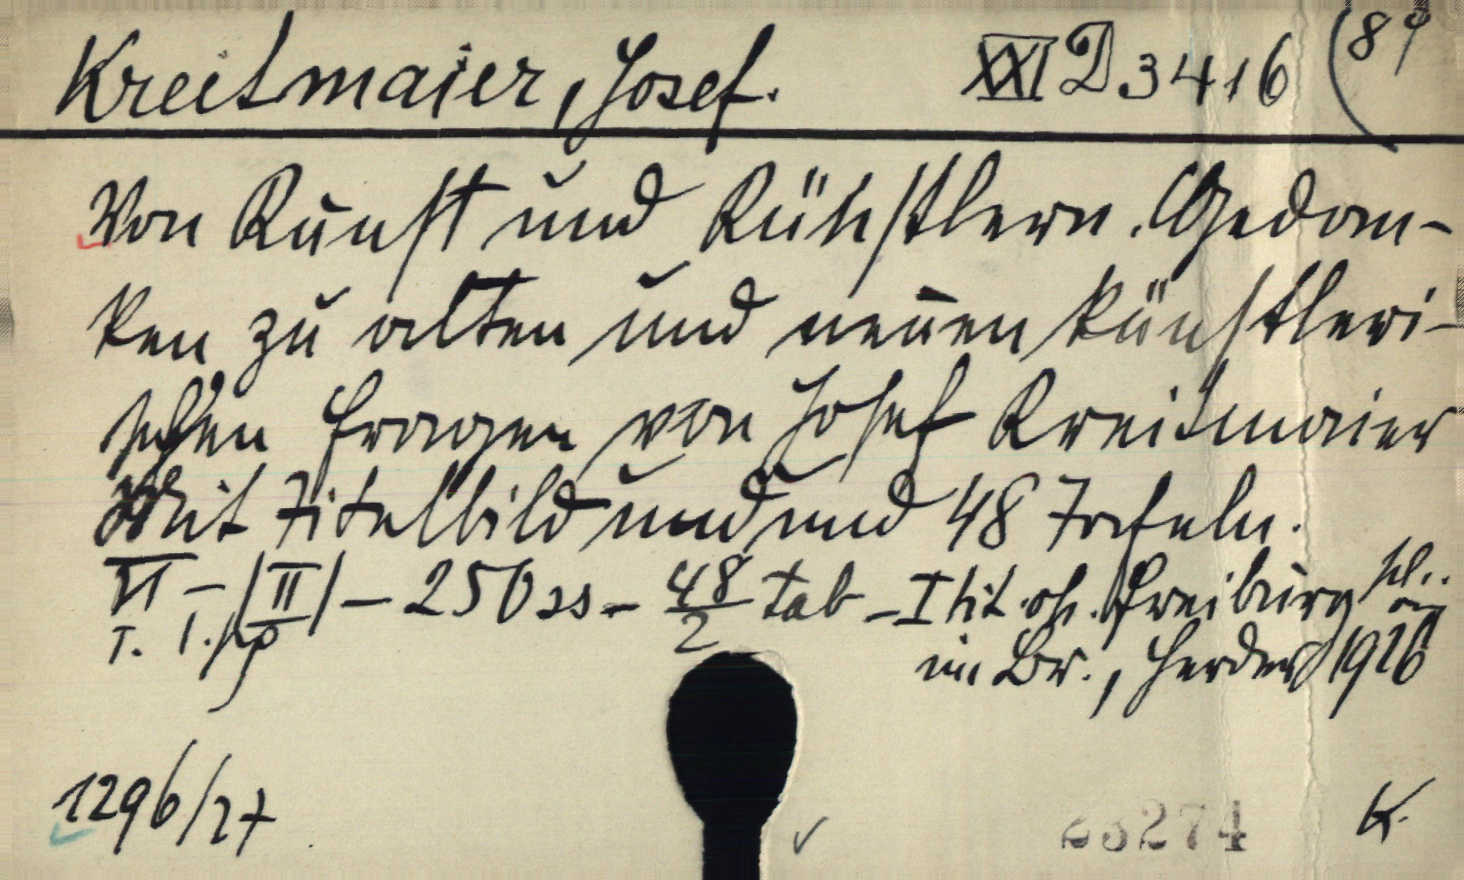 Kreitmaier, Josef. XXI D 3416 (8°
Von Kunst und Künstlern. Gedan-
ken zu alten und neuen künstleri-
schen Fragen von Josef Kreitmaier
Mit Titelbild und und 48 Tafeln.
VI - |II| - 250 ss - 48/2 tab - I tit. ob. Freiburg
T. I. pp
im Br., Herder 1926
1296/27
23274 K.